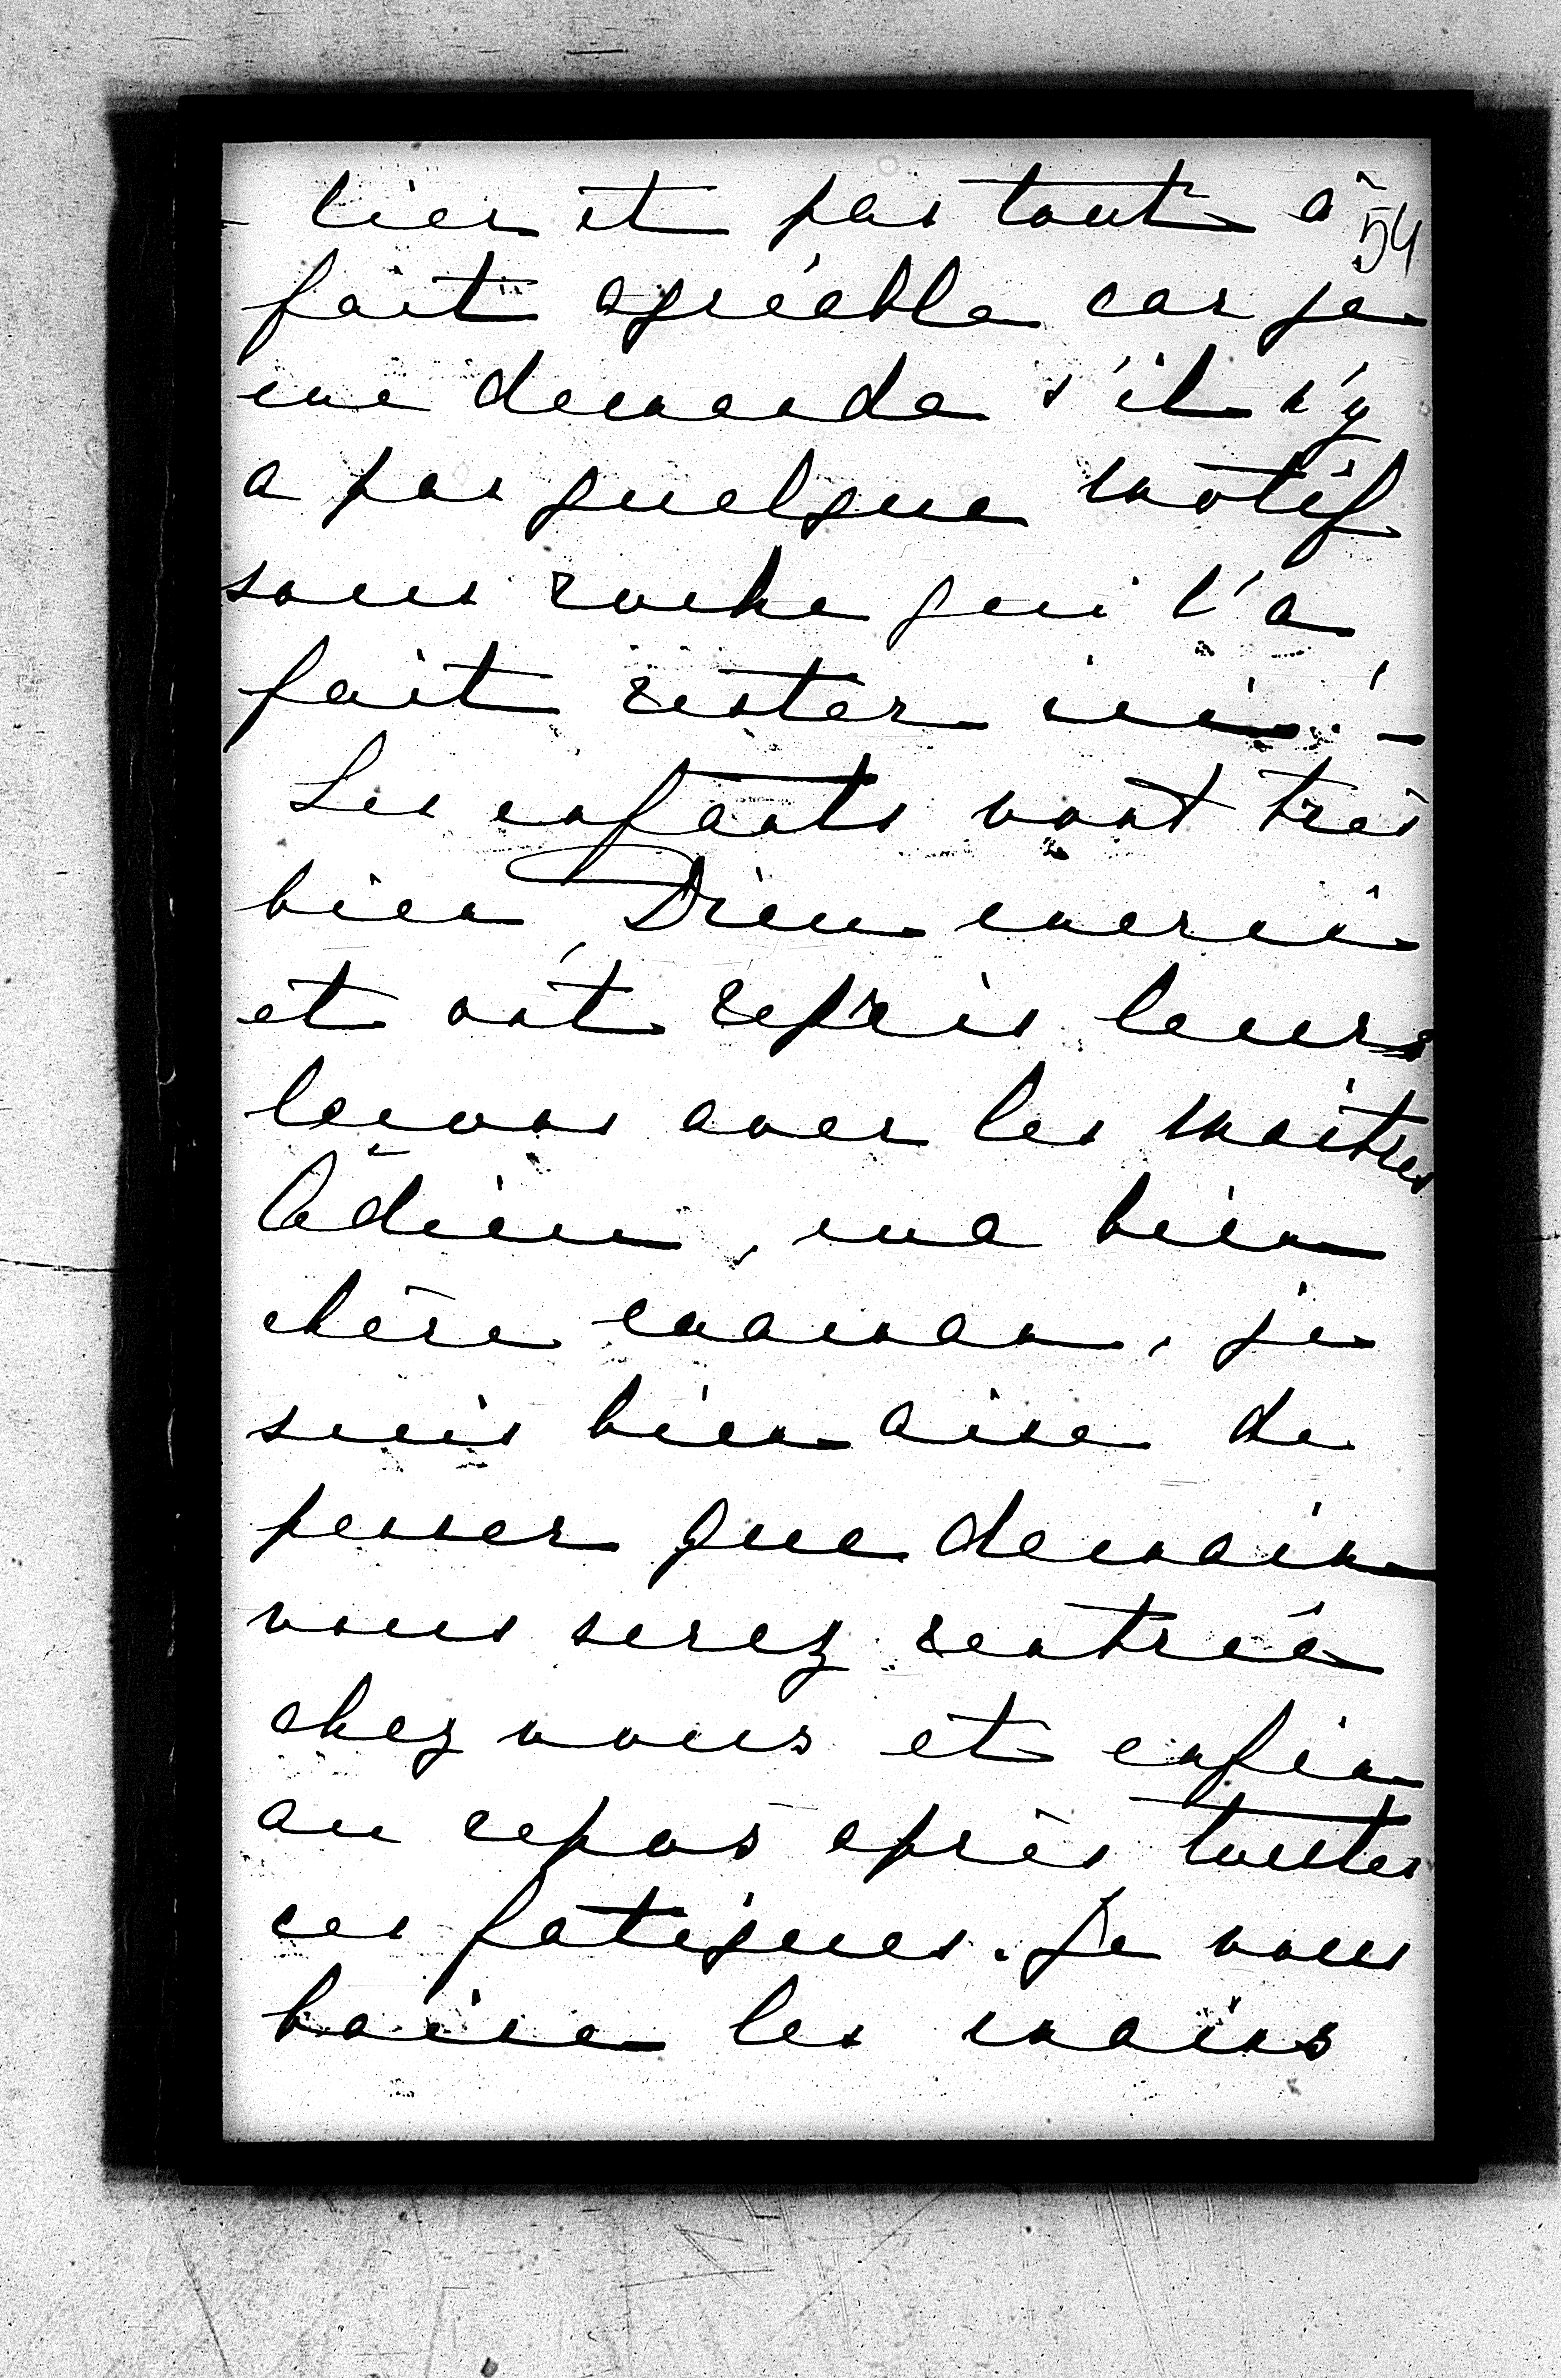 - lier et pas tout à
54
fait agréable car je
me demande s'il n'y
a pas quelque motif
sous roche qui l'a
fait rester ici. –
Les enfants vont très
bien, Dieu merci
et ont repris leurs
leçons avec les maîtres
Adieu, ma bien
chère maman, je
suis bien aise de
penser que demain
vous serez rentrée
chez vous et enfin
au repos après toutes
ces fatigues. Je vous
baise les mains